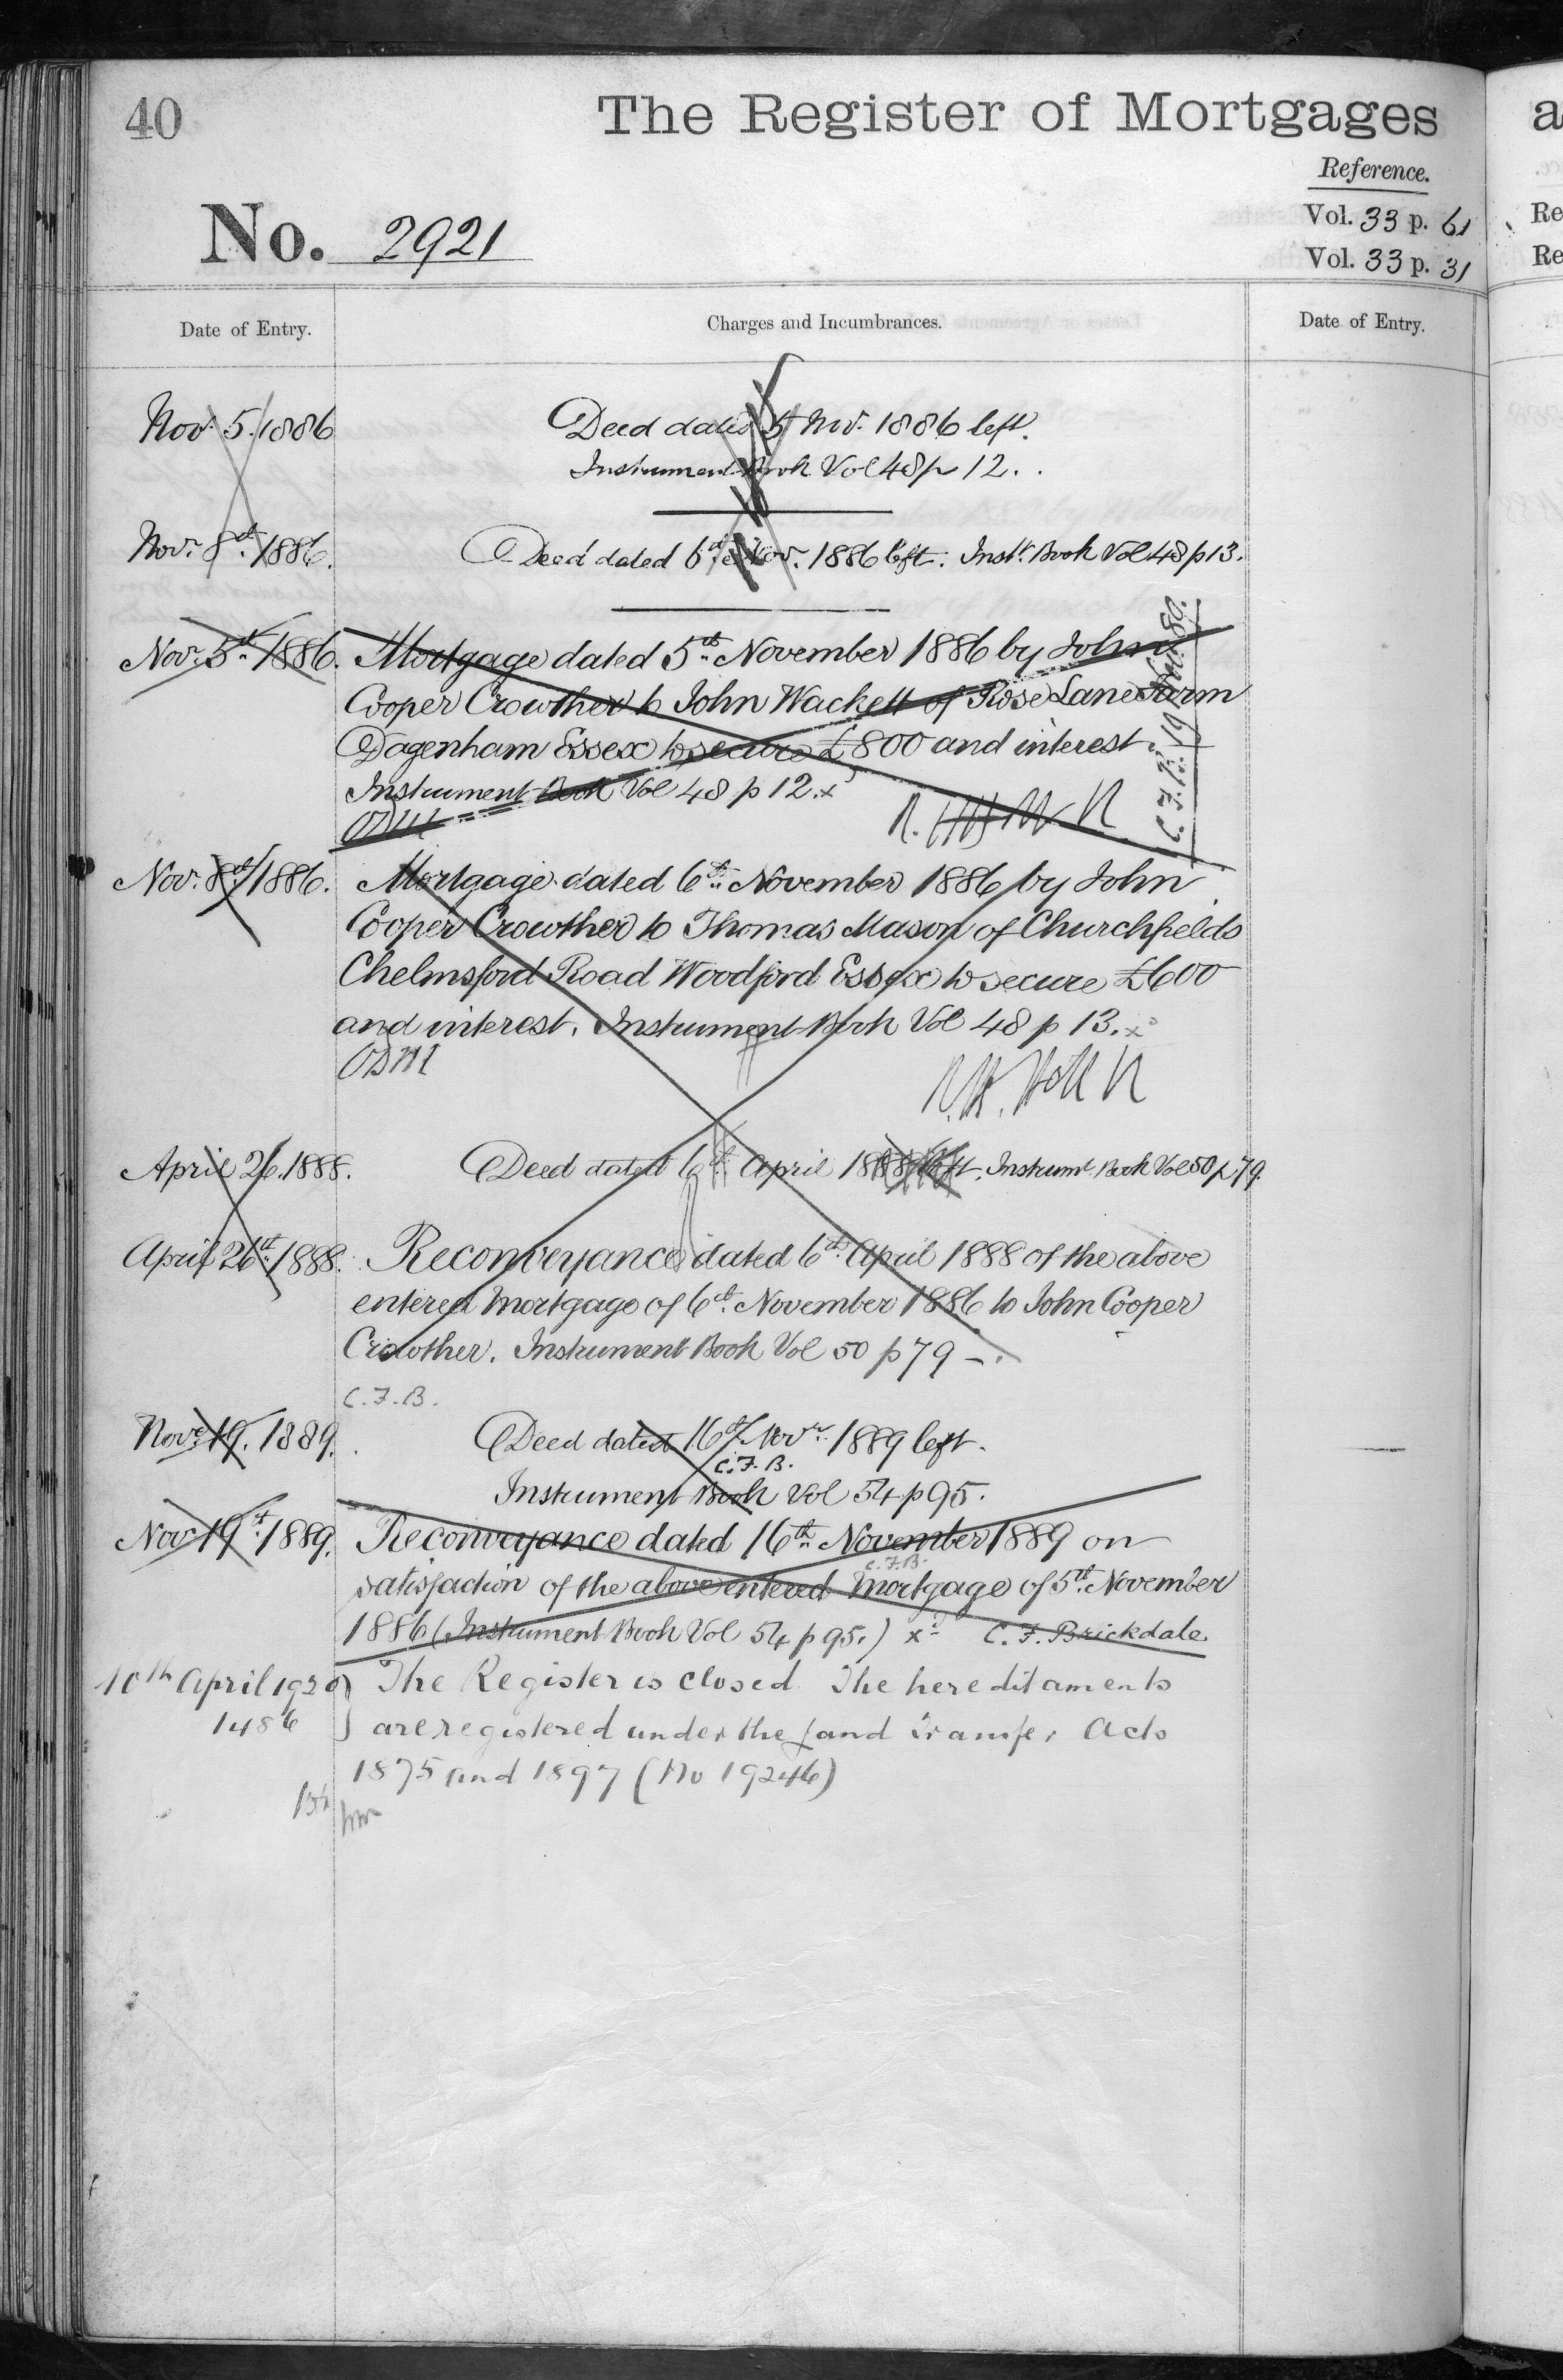 40
The Register of Mortgages
Reference.
No. 2921
Vol. 33 p. 61
Vol. 33 p. 31
Date of Entry.
Charges and Incumbrances.
Date of Entry.
Nov. 5. 1886
Deed dated 5 Nov. 1886 left.
Instrument Book Vol 48 p 12.
Nov. 8th 1886.
Deed dated 6th Nov. 1886 left. Inst. Book Vol 48 p 13.
Nov. 5th 1886.
Mortgage dated 5th November 1886 by John
Cooper Crowther to John Wackett of Rose Lane Farm
Dagenham Essex to secure £800 and interest
Instrument Book Vol 48 p 12.
Nov. 8th 1886.
Mortgage dated 6th November 1886 by John
Cooper Crowther to Thomas Mason of Churchfields
Chelmsford Road Woodford Essex to secure £600
and interest. Instrument Book Vol 48 p 13.
April 26. 1888.
Deed dated 6th April 1888 left. Instrumt Book Vol 50 p 79.
April 26th 1888.
Reconveyance dated 6th April 1888 of the above
entered Mortgage of 6th November 1886 to John Cooper
Crowther. Instrument Book Vol 50 p 79 -.
C.F.B.
Nov. 19. 1889.
Deed dated 16th Novr. 1889 left.
C.F.B.
Instrument Book Vol 54 p 95.
Nov. 19th 1889.
Reconveyance dated 16th November 1889 on
C.F.B.
satisfaction of the above entered Mortgage of 5th November
1886 (Instrument Book Vol 54 p 95.) C. F. Brickdale.
10th April 1920
The Register is closed. The hereditaments
1486
are registered under the Land Transfer Acts
1875 and 1897 (No 19246)
a
Re
Re